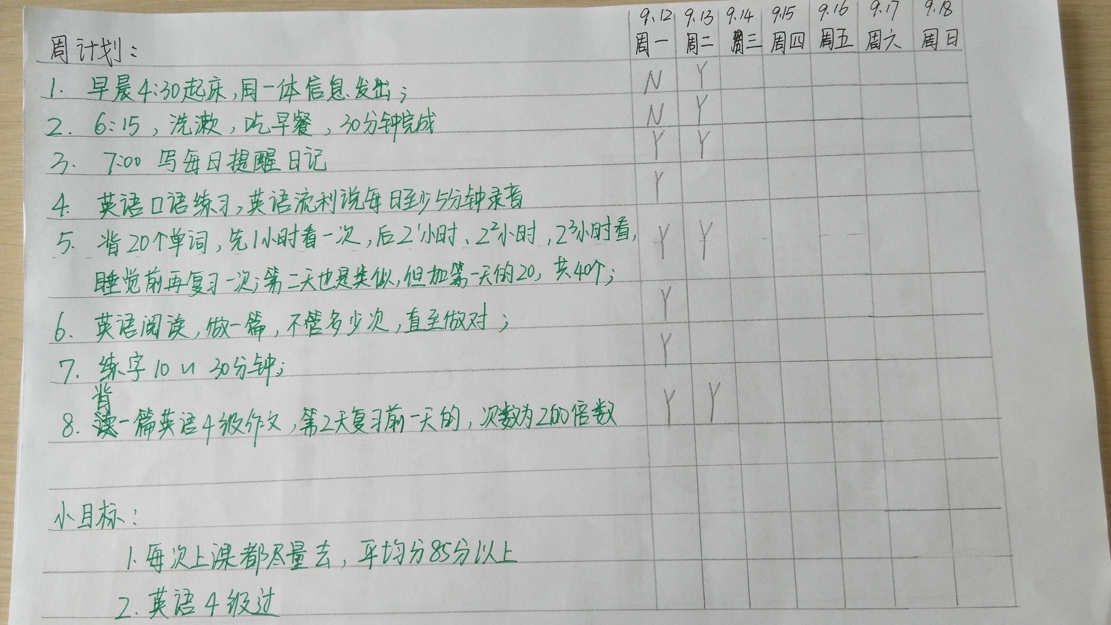 9.12 9.13 9.14 9.15 9.16 9.17 9.18
周计划： 周一 周二 周三 周四 周五 周六 周日
1. 早晨4:30起床,用一体信息发出； N Y
2. 6:15，洗漱，吃早餐，30分钟完成 N Y
3. 7:00 写每日提醒日记 Y Y
4. 英语口语练习,英语流利说每日至少5分钟录音 Y
5. 背20个单词，先1小时看一次，后2¹小时、2²小时，2³小时看, Y Y
睡觉前再复习一次;第二天也是类似,但加第一天的20，共40个；
6. 英语阅读,做一篇，不管多少次，直至做对； Y
7. 练字10 30分钟； Y
背
8. 一篇英语4级作文,第2天复习前一天的，次数为2的倍数 Y Y
小目标：
1.每次上课都尽量去，平均分85分以上
2. 英语4级过